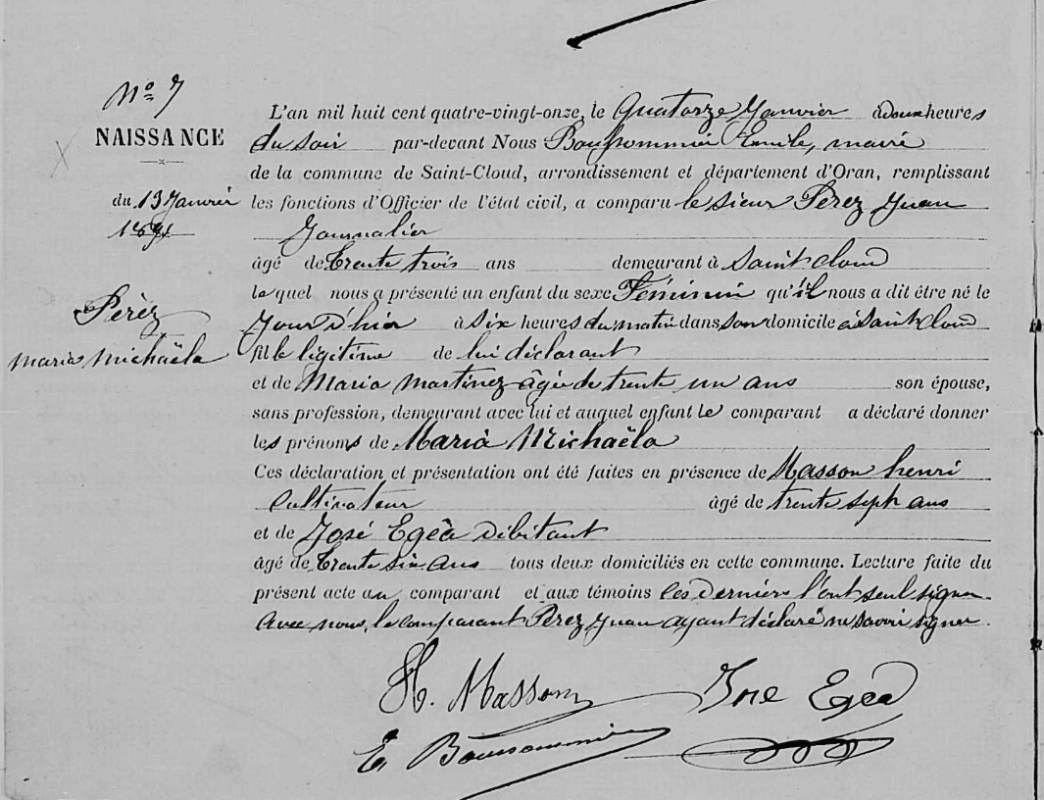 Nº 7
NAISSANCE
du 13 Janvier
1891
Pèréz
Maria Michaëla
L'an mil huit cent quatre-vingt-onze, le Quatorze Janvier à deux heures
du soir par-devant Nous Boussommier Emile, maire
de la commune de Saint-Cloud, arrondissement et département d'Oran, remplissant
les fonctions d'Officier de l'état civil, a comparu le sieur Pèrez Juan
Journalier
âgé de trente trois ans demeurant à Saint cloud
lequel nous a présenté un enfant du sexe Féminin qu'il nous a dit être né le
Jour d'hier à six heures du matin dans son domicile à Saint cloud
fille légitime de lui déclarant
et de Maria Martinez âgée de trente un ans son épouse,
sans profession, demeurant avec lui et auquel enfant le comparant a déclaré donner
les prénoms de Maria Michaëla
Ces déclaration et présentation ont été faites en présence de Masson henri
Cultivateur âgé de trente sept ans
et de José Egéa débitant
âgé de trente six ans tous deux domiciliés en cette commune. Lecture faite du
présent acte au comparant et aux témoins ces derniers l'ont seul signer
avec nous, le comparant Pèrez Juan ayant déclaré ne savoir signer.
H. Masson Jose Egea
E. Boussommier